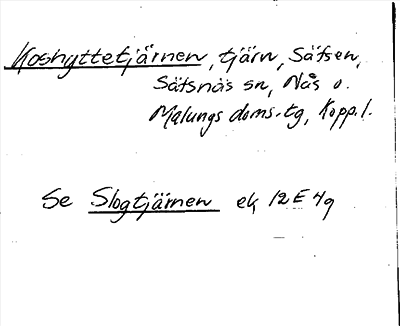 Koshyttetjärnen, tjärn, Säfsen,
Säfsnäs sn, Nås o.
Malungs doms.tg, Kopp.l.
Se Slogtjärnen ek 12E4g